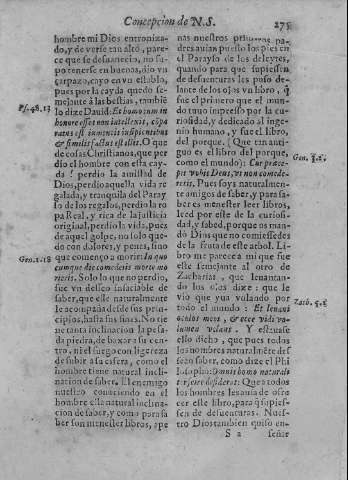 Concepcion de N.S.
275
hombre mi Dios entroniza-
do, y de verse tan alto, pare-
ce que se desuanecio, no su-
po tenerse en buenos, dio vn
çarpazo, cayo en vn establo,
pues por la cayda quedo se-
mejante à las bestias, tambiẽ
Ps. 48.13
lo dize Dauid: Et homo cum in
honore esset non intellexit, cõpa
ratus est iumentis insipientibus
& similis factus est illis. O que
de cosas Christianos, que per
dio el hombre con esta cay-
da! perdio la amistad de
Dios, perdio aquella vida re
galada, y tranquila del Paray
so de los regalos, perdio la ro
pa Real, y rica de la justicia
original, perdio la vida, pues
de aquel golpe, no solo que-
do con dolores, y penas, sino
que començo a morir: In quo
Gen. 2.18
cumque die comederis morte mo
rieris. Solo lo que no perdio,
fue vn desseo insaciable de
saber, que este naturalmente
le acompaña desde sus prin-
cipios, hasta sus fines. No tie
ne tanta inclinacion la pesa-
da piedra, de baxar a su cen-
tro, ni el fuego con ligereza
de subir a su esfera, como el
hombre tiene natural incli-
nacion de saber. El enemigo
nuestro conociendo en el
hombre esta natural inclina-
cion de saber, y como para sa
ber son menester libros, ape
nas nuestros primeros pa-
dres auian puesto los pies en
el Parayso de los deleytes,
quando para que supiessen
de desuenturas les puso de-
lante de los ojos vn libro, q̃
fue el primero que el mun-
do tuuo impresso por la cu-
riosidad, y dedicado al inge-
nio humano, y fue el libro,
del porque. (Que tan anti-
guo es el libro del porque,
como el mundo): Cur præce-
Gen. 3.1.
pit vobis Deus, vt non comede-
retis. Pues soys naturalmen-
te amigos de saber, y para sa-
ber es menester leer libros,
leed por este de la curiosi-
dad, y sabed, porque os man-
dò Dios que no comiessedes
de la fruta de este arbol. Li-
bro me parece a mi que fue
este semejante al otro de
Zacharias, que leuantan-
do los ojos dize: que le
vio que yua volando por
todo el mundo: Et leuaui
Zach. 5.1.
oculos meos, & ecce vidi vo-
lumen volans. Y estàuase
esto dicho, que pues todos
los hombres naturalmẽte des
sean saber, como dize el Phi
losopho: Omnis homo naturali
ter scire desiderat: Que a todos
los hombres les auia de ofre
cer este libro, para q̃ supies-
sen de desuenturas. Nues-
tro Dios tambien quiso en-
S 2
señar